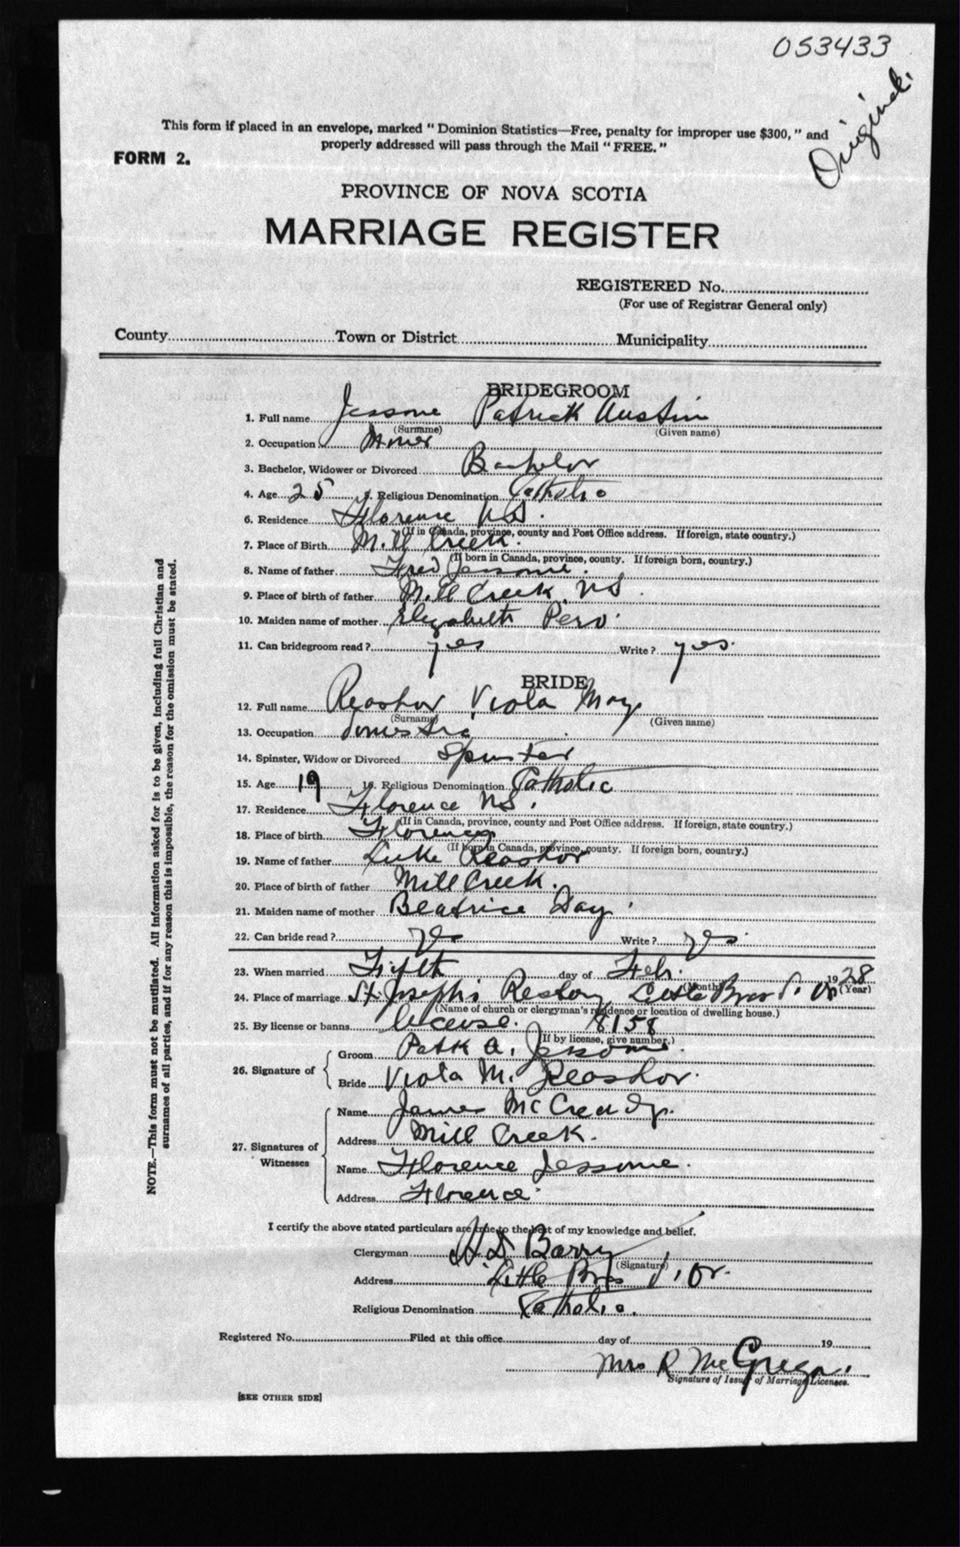 053433
Original.
This form if placed in an envelope, marked "Dominion Statistics—Free, penalty for improper use $300," and
properly addressed will pass through the Mail "FREE."
FORM 2.
PROVINCE OF NOVA SCOTIA
MARRIAGE REGISTER
REGISTERED No.
(For use of Registrar General only)
County Town or District Municipality
BRIDEGROOM
1. Full name Jessome Patrick Austin
(Surname) (Given name)
2. Occupation Miner
3. Bachelor, Widower or Divorced Bachelor
4. Age 25 5. Religious Denomination Catholic
6. Residence Florence N.S.
(If in Canada, province, county and Post Office address. If foreign, state country.)
7. Place of Birth Mill Creek.
(If born in Canada, province, county. If foreign born, country.)
8. Name of father Fred Jessome.
9. Place of birth of father Mill Creek NS
10. Maiden name of mother Elizabeth
11. Can bridegroom read? yes Write? yes.
BRIDE
12. Full name Reashor Viola May
(Surname) (Given name)
13. Occupation Domestic
14. Spinster, Widow or Divorced Spinster
15. Age 19 16. Religious Denomination Catholic
17. Residence Florence NS.
(If in Canada, province, county and Post Office address. If foreign, state country.)
18. Place of birth Florence
(If born in Canada, province, county. If foreign born, country.)
19. Name of father Luke Reashor
20. Place of birth of father Mill Creek.
21. Maiden name of mother Beatrice Day.
22. Can bride read? Yes Write? Yes.
23. When married Fifth day of Feb. 1928
(Month) (Year)
24. Place of marriage St Joseph's Rectory Little Bras d'Or
(Name of church or clergyman's residence or location of dwelling house.)
25. By license or banns license. 8158
(If by license, give number.)
26. Signature of
Groom Patk A. Jessome.
Bride Viola M. Reashor.
27. Signatures of Witnesses
Name James McCready.
Address Mill Creek.
Name Florence Jessome.
Address Florence
I certify the above stated particulars are true to the best of my knowledge and belief.
Clergyman Barry
(Signature)
Address Little Bras d'Or.
Religious Denomination Catholic.
Registered No. Filed at this office day of 19
Mrs R McGregor
Signature of Issuer of Marriage Licenses.
[SEE OTHER SIDE]
NOTE.—This form must not be mutilated. All information asked for is to be given, including full Christian and
surnames of all parties, and if for any reason this is impossible, the reason for the omission must be stated.